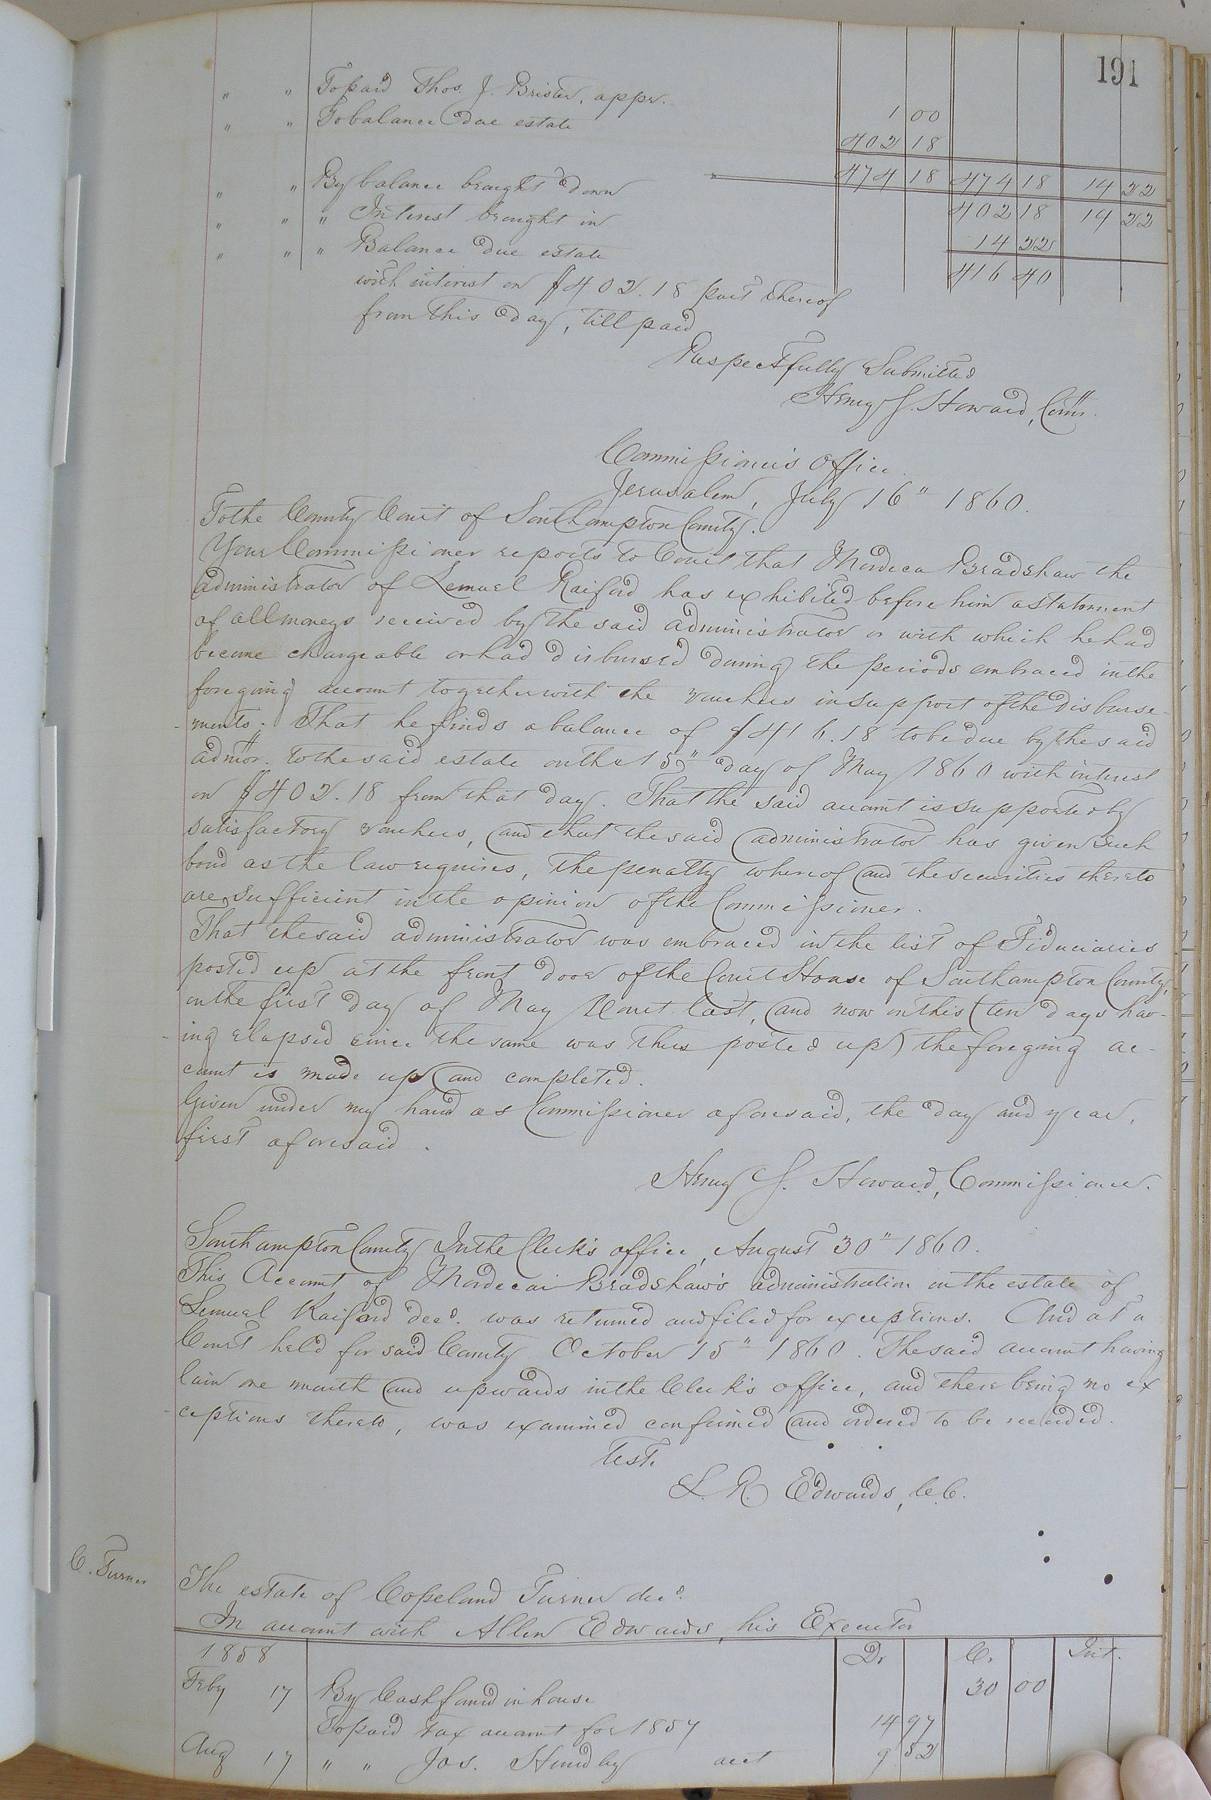 191
" " To paid Thos. J. Brister, appr. 1 00
" " To balance due estate 402 18
474 18 474 18 14 22
" " By balance brought down 402 18 14 22
" " " Interest brought in 14 22
" " " Balance due estate 416 40
with interest on $402.18 part thereof
from this day, till paid
Respectfully Submitted
Henry J. Howard, Comr.
Commissioner's office
Jerusalem, July 16" 1860.
To the County Court of Southampton County.
Your Commissioner reports to Court that Mordeca Bradshaw the
administrator of Lemuel Raiford has exhibited before him a statement
of all moneys received by the said administrator or with which he had
become chargeable or had disbursed during the periods embraced in the
foregoing account together with the vouchers in support of the disburse-
ments. That he finds a balance of $416.18 to be due by the said
admor. to the said estate on the 15" day of May 1860 with interest
on $402.18 from that day. That the said account is supported by
satisfactory vouchers, and that the said administrator has given such
bond as the law requires, the penalty whereof and the securities thereto
are sufficient in the opinion of the Commissioner.
That the said administrator was embraced in the list of Fiduciaries
posted up at the front door of the Court House of Southampton County,
on the first day of May Court last, and now on this (ten days hav-
ing elapsed since the same was thus posted up) the foregoing ac-
count is made up and completed.
Given under my hand as Commissioner aforesaid, the day and year,
first aforesaid.
Henry J. Howard, Commissioner.
Southampton County In the Clerk's office, August 30" 1860.
This Account of Mordecai Bradshaw's administration on the estate of
Lemuel Raiford decd. was returned and filed for exceptions. And at a
Court held for said County October 15" 1860. The said account having
lain one month and upwards in the Clerk's office, and there being no ex
ceptions thereto, was examined confirmed and ordered to be recorded.
Test.
L. R. Edwards, C.C.
C. Turner
The estate of Copeland Turner decd.
In account with Allen Edwards, his Executor
1858 Dr Cr. Int.
Feby 17 By Cash found in house 30 00
To paid tax account for 1857 14 97
Aug 17 " " Jas. Hundley acct 9 52